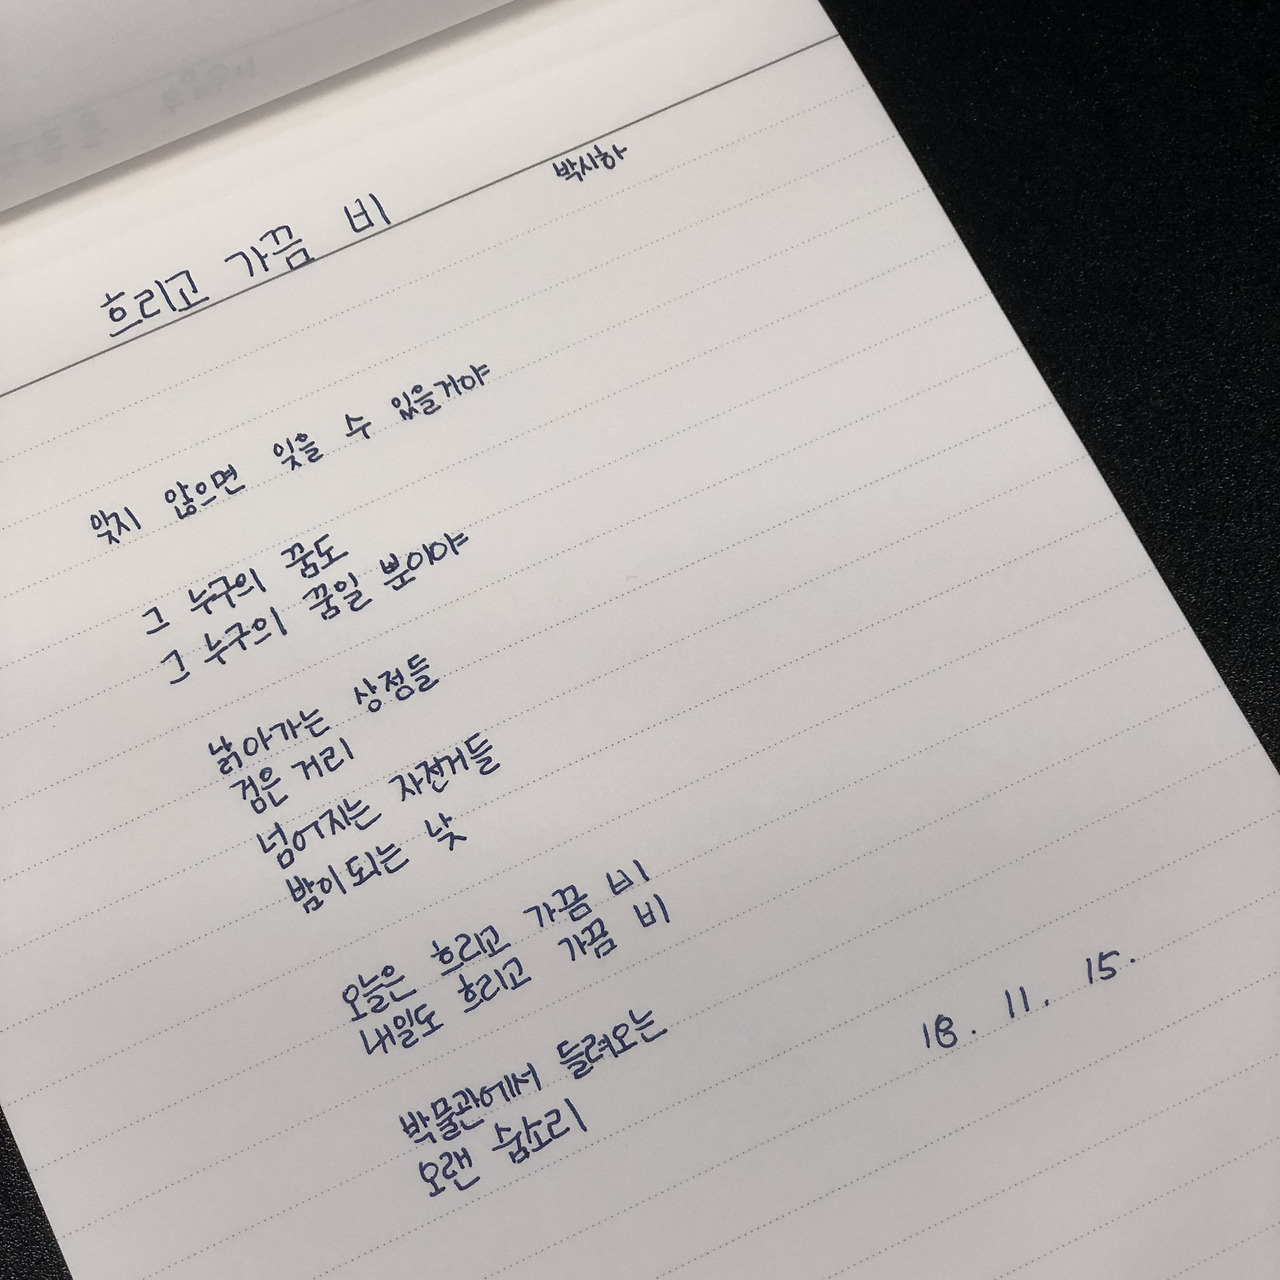 흐리고 가끔 비
박시하
않으면 잊을 수 있을거야
그 누구의 꿈도
그 누구의 꿈일 뿐이야
낡아가는 상점들
검은 거리
넘어지는 자전거들
밤이 되는 낮
오늘은 흐리고 가끔 비
내일도 흐리고 가끔 비
박물관에서 들려오는
오랜 숨소리
18. 11. 15.